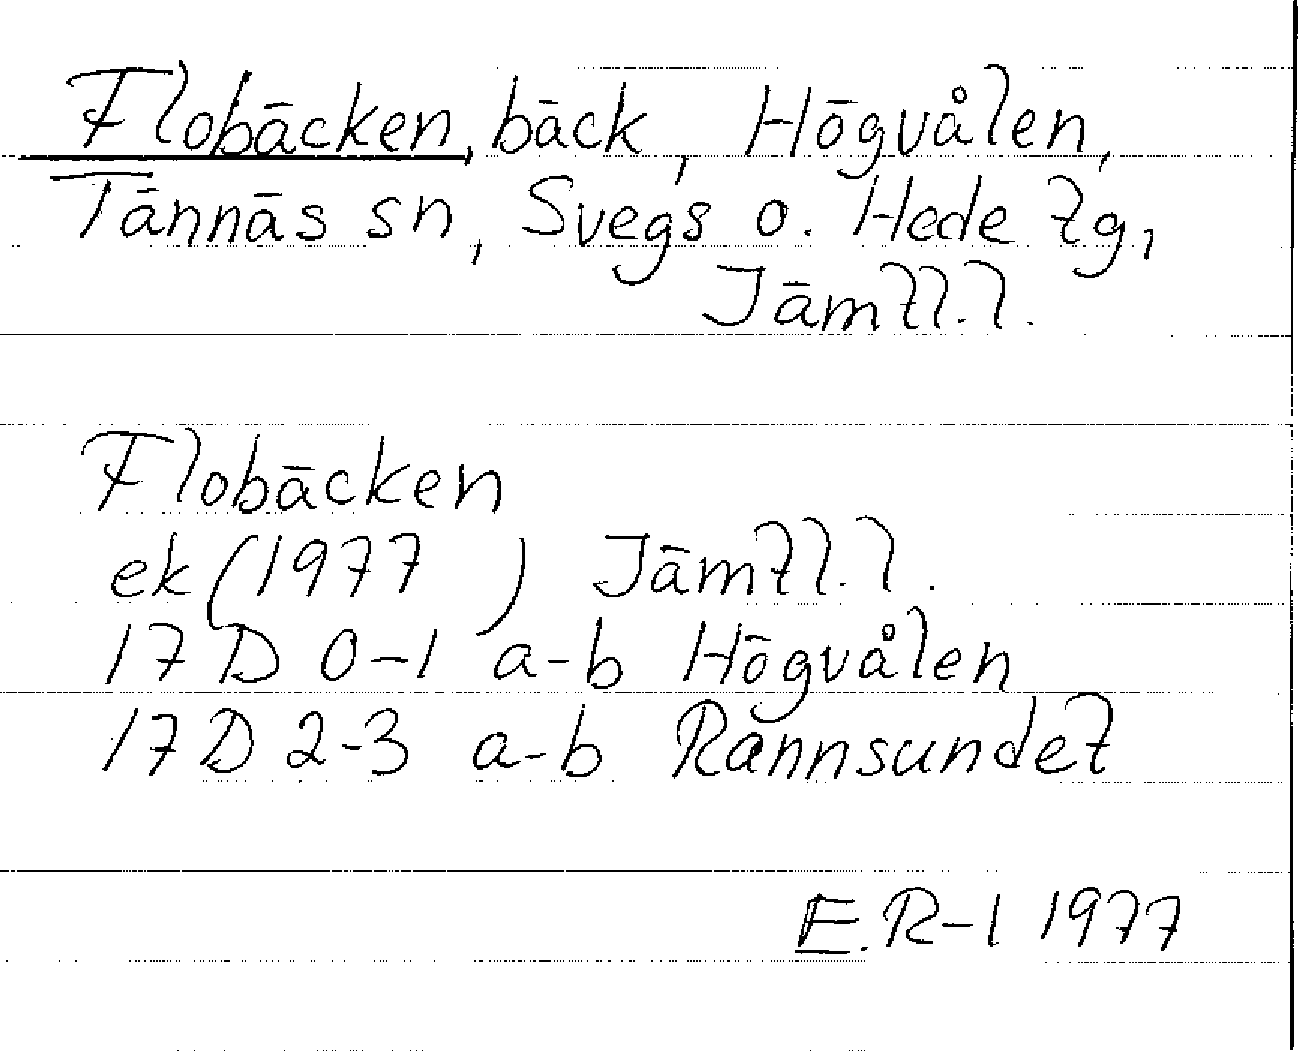 Flobäcken, bäck, Högvålen,
Tännäs sn, Svegs o. Hede tg,
Jämtl.l.
Flobäcken
ek (1977 ) Jämtl.l.
17 D 0-1 a-b Högvålen
17 D 2-3 a-b Rannsundet
E.R-l 1977